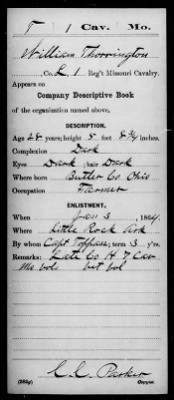 T | 1 | Cav. | Mo.
William Thorrington
, Co. L, 1 Reg't Missouri Cavalry.
Appears on
Company Descriptive Book
of the organization named above.
DESCRIPTION.
Age 28 years; height 5 feet 8¾ inches.
Complexion Dark
Eyes Dark; hair Dark
Where born Butler Co Ohio
Occupation Farmer
ENLISTMENT.
When Jan 3, 1864.
Where Little Rock Ark
By whom Capt ; term 3 y'rs.
Remarks: Late Co H 7 Cav
Mo vols vet vol
C. C. Parker
(383g) Copyist.